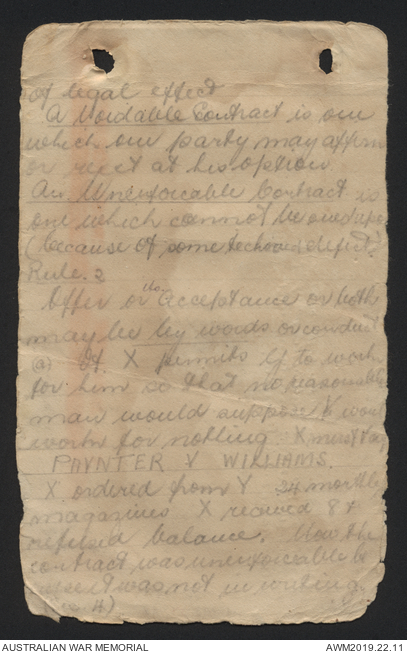 of legal effect
A Voidable Contract is one
which one party may affirm
or reject at his option.
An Unenforcable Contract is
one which cannot be sued upon
(because of some technical defect).
Rule. 2
Offer or the Acceptance or both
may be by words or conduct
(a) If X permits Y to work
for him so that no reasonable
man would suppose Y would
work for nothing X must pay
PAYNTER V WILLIAMS.
X ordered from Y 24 monthly
magazines X received 8 &
refused balance. the
contract was unenforcable
it was not in writing
AUSTRALIAN WAR MEMORIAL
AWM2019.22.11